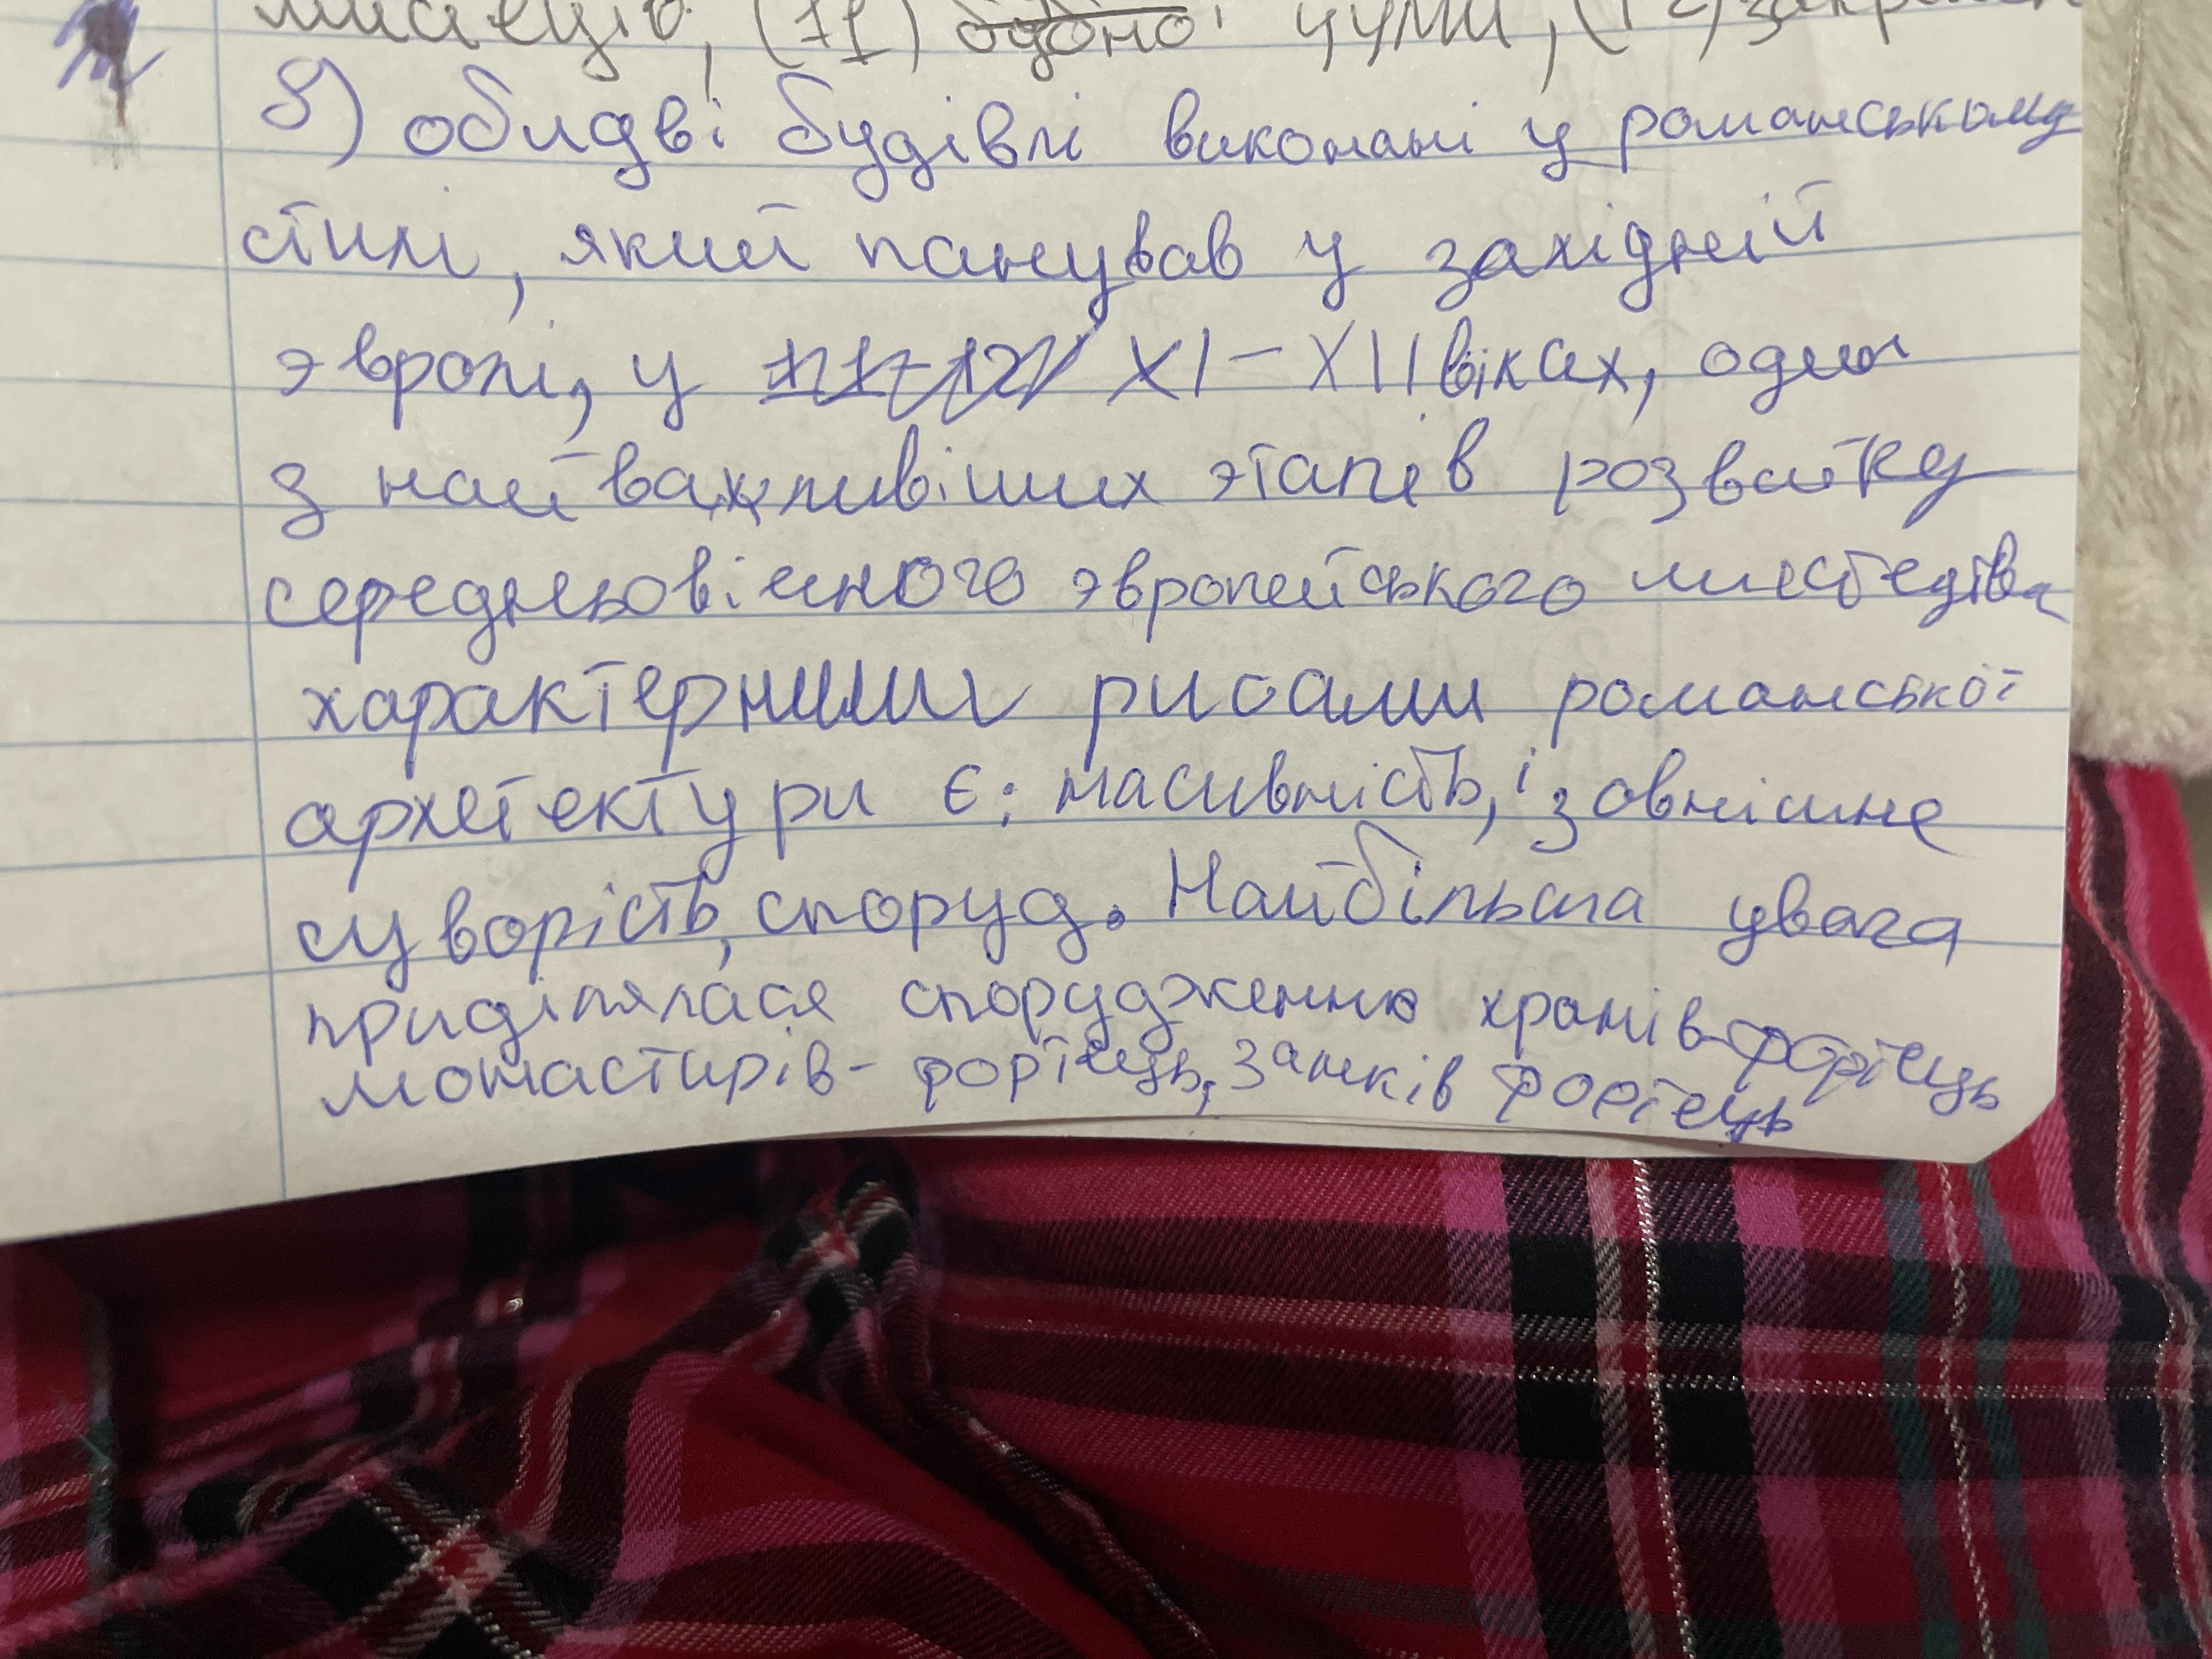 (11) чуми, (12)
8) обидві будівлі виконані у романському
стилі, який панував у західній
эвропі, у XI-XII віках, один
з найважливіших этапів розвитку
середньовічного эвропейського
характерними рисами романської
архетектури є: масивність, і зовнішне
суворість, споруд. Найбільша увага
приділялася спорудженню храмів-фортець
монастирів-фортець, замків фортець